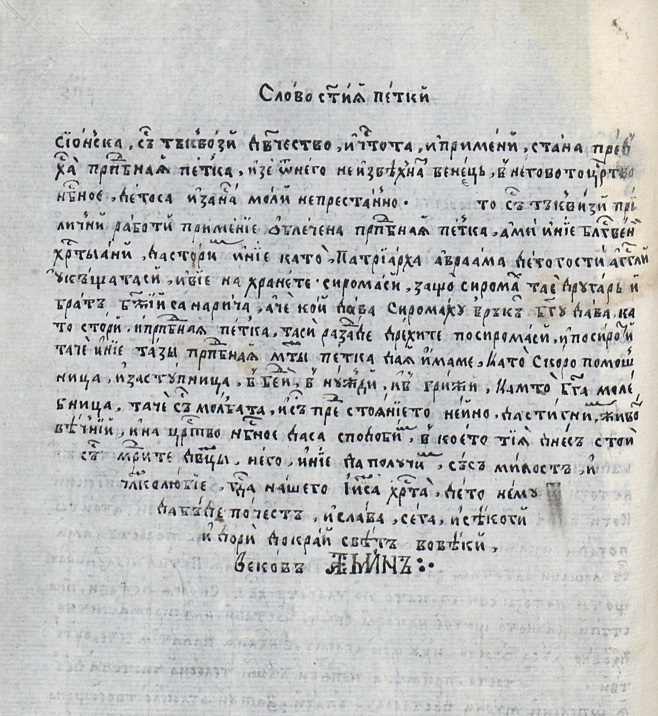 Слово ст҃їѧ̀ пе́тки
сїѡ́нска, съ҃ тъ́квози дв҃чество, и҆ чт҃ота, и҆ примѣни̏, ста́на
пр҃пбнаѧ пе́тка, и҆ зе ѿ не́го неизвѣ́хна҃ вене́цъ, в него́вото цр҃тво
нб҃ное, де́тоса и҆ за на҃ мо́ли непреста́нно. то съ҃ тъ́квизи
ли́чни ра́боти примѣне́нїе ѡ҆бле́чена пр҃пбнаѧ пе́тка, а҆ ми҆ и҆ нїе бл҃гвен
хр҃тїѧни, да сто́ри҃ и҆ нїе като̀, патрїа́рха а҆враа́ма де́то гости҆ а҆гг҃ли
у҆ къ́щатаси, и҆ вїе на хране́те сирома́си, защо̀ сирома҃ та́ѧ дру́гарь и҆
бра́тъ бж҃їи са нари́ча, а҆ че ко́й да́ва сирома́ху в рѫ́кꙋ бг҃у да́ва, ка
то сто́ри, и҆ пр҃пбнаѧ пе́тка, та си разда́де дре́хите по сирома́си, и҆ по сиро́
та́че и҆ нїе та́зы пр҃пбнаѧ мт҃ы пе́тка да ѧ҆ и҆́маме, като̀ ско́ро помо́щ
ница, и҆ засту́пница, в бе́ди, в ну́жди, и҆ в гри́жи, ка́мто бг҃а моле́
бница, та́че съ҃ мо́лбата, и҆ съ пре҃стоѧ́нїето не́йно, да сти́гни҃, живо҃
вѣ́чнїй, и҆ на цр҃тво нб҃ное да са сподо́би҃, в кое́то тїѧ̀ дне́съ стои̏
съ҃ мѫ҃дрите дв҃цы, не́го, и҆ нїе да получи҃, съсъ ми́лость, и҆
чл҃колю́бїе, гд҃а на́шего і҆и҃са хр҃та̀, де́то нему̀
да бѫ́де по́честъ, и҆ сла́ва, сега̀, и҆ се́коги
и҆ дори̏ до край све́тъ во вѣ́ки,
веко́въ а҆ми́нъ:·